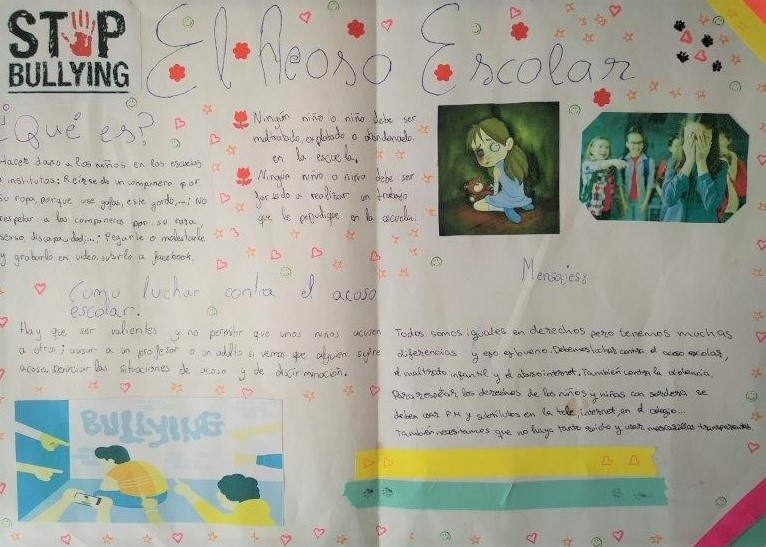 STOP
BULLYING
El Acoso Escolar
¿Qué es?
Hacer daño a los niños en las escuelas
o institutos: Reirse de un compañero por
su ropa, porque use gafas, este gordo...; No
respetar a los compañeros por su raza,
sexo, discapacidad,...; Pegarle o molestarle
y grabarlo en video, subirlo a facebook.
Ningún niño o niña debe ser
maltratado, explotado o abandonado
en la escuela.
Ningún niño o niña debe ser
forzado a realizar un trabajo
que le perjudique en la escuela.
Como luchar contra el acoso
escolar.
Hay que ser valientes y no permitir que unos niños acusen
a otros; avisar a un profesor o un adulto si vemos que alguien sufre
acoso. Denunciar las situaciones de acoso y de discriminación.
BULLYING
Mensajes:
Todos somos iguales en derechos pero tenemos muchas
diferencias y eso es bueno. Debemos luchar contra el acoso escolar,
el maltrato infantil y el abuso internet. También contra la violencia.
Para respetar los derechos de los niños y niñas con sordera se
deben usar F.M y subtitulos en la tele, internet, en el colegio...
También necesitamos que no haya tanto ruido y usar mascarillas transparentes